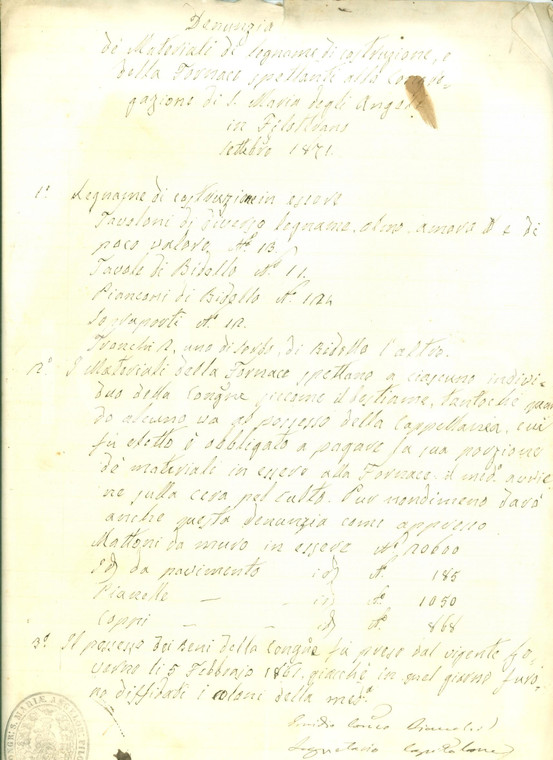 Denunzia
de Materiali di legname di costruzione, e
della Fornace spettanti alla Congre-
gazione di S. Maria degli Angeli
in Filottrano
Ottobre 1871.
1º Legname di costruzione in essere
Tavoloni di diverso legname, olmo, amora e di
poco valore Nº 13
Tavole di Bidollo Nº 11.
Pianconi di Bidollo Nº 124
Sopraponti Nº 12.
Tronchi 2, uno di sordo, di Bidollo l'altro.
2º I Materiali della Fornace spettano a ciascuno indivi-
duo della Congñe siccome il bestiame, tantoché quan
do alcuno va al possesso della Cappellania, cui
fu eletto è obbligato a pagare la sua porzione
de' materiale in essere alla Fornace, il medº avvie-
ne sulla cera pel culto. Pur nondimeno darò
anche questa denunzia come appresso
Mattoni da muro in essere Nº 20600
Id da pavimento id Nº 185
Pianelle — id Nº 1050
Coppi — id Nº 868
3º Il possesso dei beni della Congñe fu preso dal vigente Go
verno li 5 Febbrajo 186 giacché in quel giorno furo-
no diffidati i coloni della medª.
Segretario Capitolare